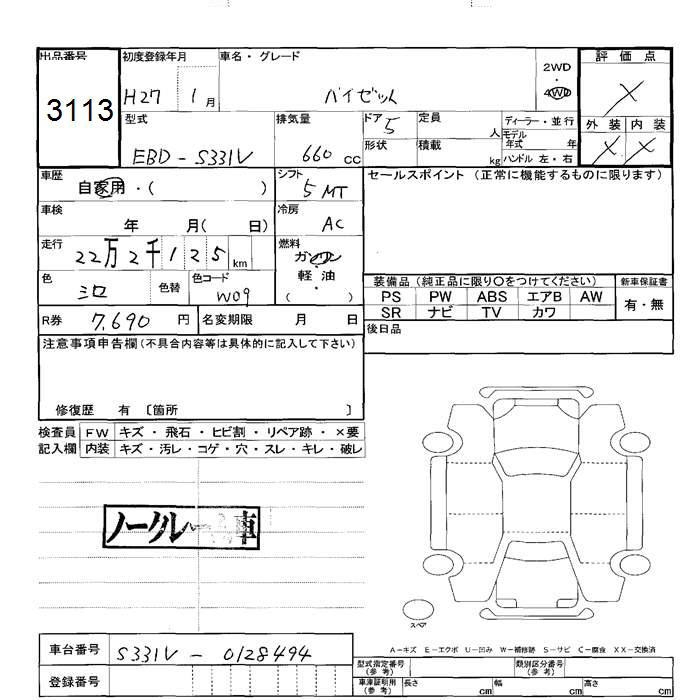 出品番号 初度登録年月 車名・グレード 評価点
3113 H27 1月 ハイゼット 2WD・4WD ×
型式 排気量 ドア 5 定員 人 ディーラー・並行 外装 内装
EBD-S331V 660cc 形状 積載 kg モデル年式 年 ハンドル 左・右 × ×
車歴 自家用・( ) シフト 5MT セールスポイント (正常に機能するものに限ります)
車検 年 月( 日) 冷房 AC
走行 22万2千125km 燃料 ガソリン・軽油 ( )
色 シロ 色替 色コード W09 装備品 (純正品に限り〇をつけてください) 新車保証書
PS PW ABS エアB AW 有・無
SR ナビ TV カワ
R券 7,690円 名変期限 月 日 後日品
注意事項申告欄 (不具合内容等は具体的に記入して下さい)
修復歴 有 〔箇所 〕
検査員 FW キズ・飛石・ヒビ割・リペア跡・×要
記入欄 内装 キズ・汚レ・コゲ・穴・スレ・キレ・破レ
ノークレーム車
スペア
A-キズ E-エクボ U-凹み W-補修跡 S-サビ C-腐食 XX-交換済
車台番号 S331V-0128494 型式指定番号(参考) 類別区分番号(参考)
登録番号 車庫証明用(参考) 長さ cm 幅 cm 高さ cm